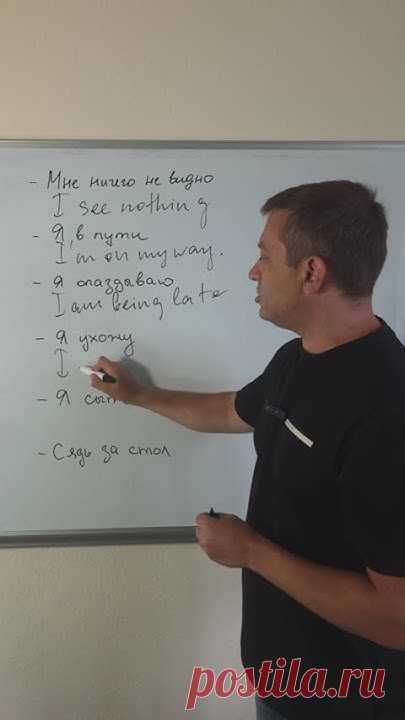 - Мне ничего не видно
I see nothing
- Я в пути
I'm on my way.
- Я опаздаваю
I am being late
- Я ухожу
I
- Я
- Сядь за стол
postila.ru